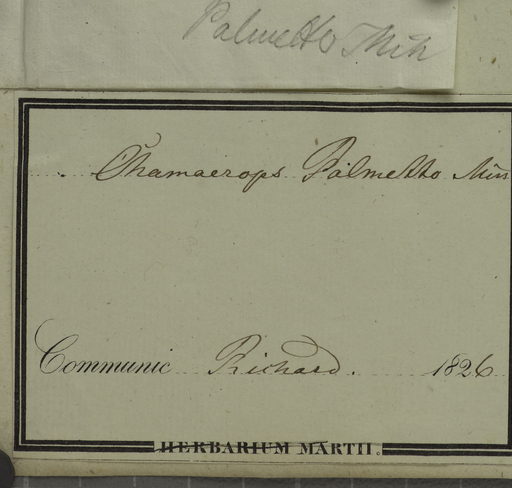 Palmetto Mih
Chamaerops Palmetto Mih
Communic Richard. 1826
HERBARIUM MARTII.